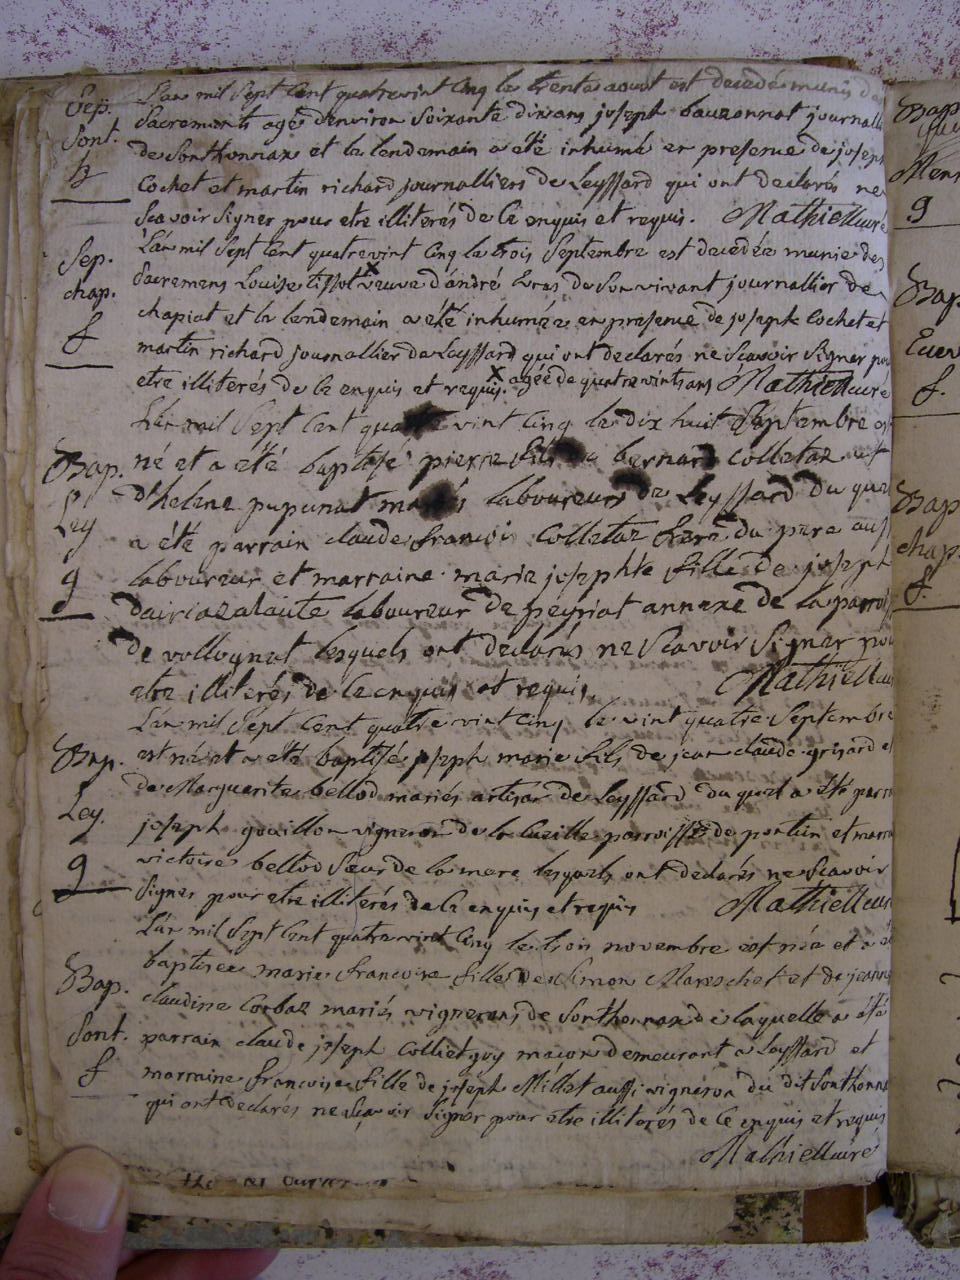 Sep.
Sont.
h
L'an mil sept cent quatrevint cinq le trente aoust est decedé munis des
sacrements agé d'environ soixante dix ans joseph bauzonnat journall
de sonthonnax et le lendemain a été inhumé en presence de joseph
Cochet et martin richard journalliers de Leyssard qui ont declarés ne
scavoir signer pour etre illiterés de ce enquis et requis. Mathieu curé
Sep.
chap.
f
L'an mil sept cent quatrevint cinq le trois septembre est decedée munie des
sacremens Louise tissot x veuve d'andré Evras de son vivant journallier de
chapiat et le lendemain a été inhumée en presence de joseph Cochet et
martin richard journallier de Leyssard qui ont declarés ne scavoir signer pou
etre illiterés de ce enquis et requis. x agée de quatrevints ans Mathieu curé
Bap.
Ley
g
L'an mil sept cent quatre vint cinq le dix huit septembre est
né et a été baptisé pierre fils de bernard Colletaz et
d'helene pupunat mariés laboureurs de Leyssard du quel
a été parrain claude francois Colletaz frere du pere aussi
laboureur et marraine marie josephte fille de joseph
laboureur de peyriat annexe de la parroiss
de vollognat lesquels ont declarés ne scavoir signer pou
etre illiterés de ce enquis et requis. Mathieu cur
Bap.
Ley.
g
L'an mil sept cent quatre vint cinq le vint quatre septembre
est né et a été baptisé joseph marie fils de jean claude grisard et
de Marguerite bellod mariés artisan de Leyssard du quel a été parr
joseph gouillon vigneron de la Cueille parroisse de poncin et marra
victoire bellod sœur de la mere lesquels ont declarés ne scavoir
signer pour etre illiterés de ce enquis et requis Mathieu cur
Bap.
Sont.
f
L'an mil sept cent quatre vint cinq le trois novembre est née et a été
baptisée marie francoise fille de simon Mareschet et de jeanne
claudine Corbaz mariés vignerons de sonthonnax de laquelle a été
parrain claude joseph Collietguy macon demeurant a Leyssard et
marraine francoise fille de joseph Millet aussi vigneron du dit sonthonna
qui ont declarés ne scavoir signer pour etre illiterés de ce enquis et requis
Mathieu curé
Bap
Mens
g
Bap
f.
Bap
chap.
f.